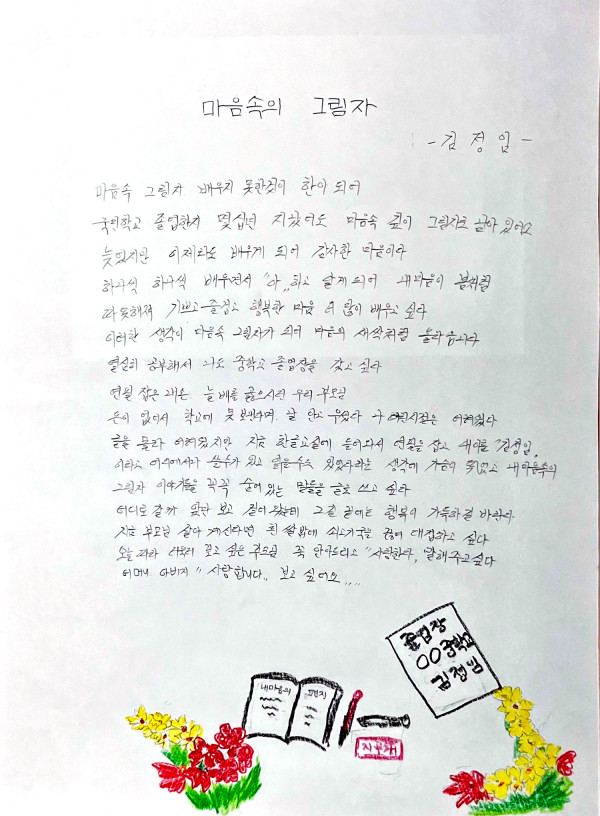 마음속의 그림자
- 김정임 -
마음속 그림자 배우지 못한것이 한이 되어
국민학교 졸업한지 몇십년 지났어도 마음속 깊이 그림자로 남아 있어요
늦었지만 이제라도 배우게 되어 감사한 마음이다
하나씩 하나씩 배우면서 "아,,하고 알게되어 내마음이 봄처럼
따뜻해져 기쁘고 즐겁고 행복한 마음 더 많이 배우고 싶다
이러한 생각이 마음속 그림자가 되어 마음의 새싹처럼 올라옵니다
열심히 공부해서 나도 중학교 졸업장을 갖고 싶다
연필 잡은 늘 배를 굶으시던 우리 부모님
돈이 없어서 학교에 못 보낸다며 날 안고 우셨다 그 어린시절은 어려웠다
글을 몰라 어려웠지만 지금 한글교실에 들어와서 연필을 잡고 "김정임,,
이라고 어디에서나 쓸수가 있고 읽을수도 있었다라는 생각에 가슴이 뛰었고 내마음속의
그림자 이야기들을 꼭꼭 숨어있는 말들을 글로 쓰고 싶다
어디로 갈까 앞만 보고 걸어왔는데 그길 끝에는 행복이 가득하길 바란다
지금 부모님 살아 계신다면 흰 쌀밥에 쇠고기국을 끓여 대접하고 싶다
오늘 따라 더욱더 보고 싶은 부모님 꼭 안아드리고 "사랑한다,, 말해주고싶다
어머니 아버지 "사랑합니다,, 보고 싶어요....
졸업장
○○중학교
김정임
내마음의 편지
지우개